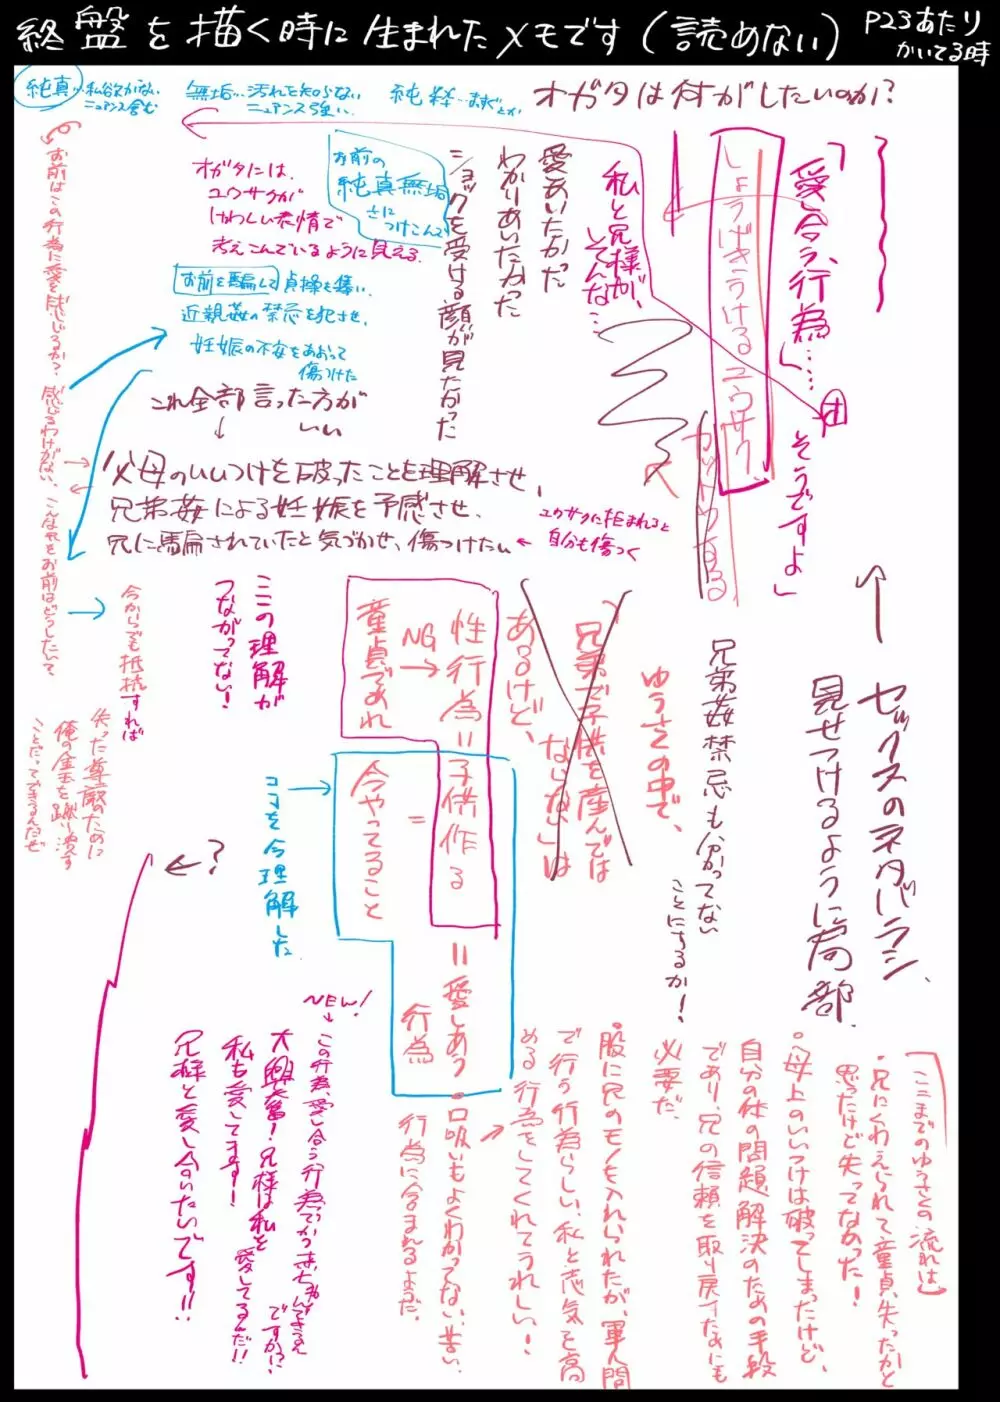 終盤を描く時に生まれたメモです(読めない)
P23あたり
かいてる時
純真…私欲がない
ニュアンス含む
無垢…汚れを知らない
ニュアンス強い
純粋…まぜ
オガタは何がしたいのか?
「愛し合う、行為」……
そうですよ」
しょうげきうけるユウサク
カットウする
私と兄様が、
そんな…
愛しあいたかった
わかりあいたかった
ショックを受ける顔が見たかった
お前の
純真無垢
さに
つけこんで
オガタには、
ユウサクが
けわしい表情で
考えこんでいるように見える
お前を騙して貞操を奪い、
近親姦の禁忌を犯させ、
妊娠の不安をあおって
傷つけた
これ全部言った方が
いい
父母のいいつけを破ったことを理解させ、
兄弟姦による妊娠を予感させ、
兄に騙されていたと気づかせ、傷つけたい
ユウサクに拒まれると
自分も傷つく
お前はこの行為に愛を感じるか?
感じるわけがない、こんな兄をお前はどうしたいて
今からでも抵抗すれば
失った尊厳のために
俺の金玉を蹴り潰す
ことだってできるんだぜ
?
ここの理解が
つながってない!
性行為=子供作る
NG
童貞であれ
=
今やってること
=愛しあう
行為
ココを今理解した
「兄弟で子供を産んでは
ならない」は
あるけど、
ゆうさくの中で、
兄弟姦禁忌も分かってない
ことにするか!
セックスのネタバラシ、
見せつけるように局部
(ここまでのゆうさくの流れは)
・兄にくわえられて童貞失ったかと
思ったけど失ってなかった!
・母上のいいつけは破ってしまったけど、
自分の体の問題解決のための手段
であり、兄の信頼を取り戻すためにも
必要だ、
・股に兄のモノを入れられたが、軍人間
で行う行為らしい、私と志気を高
める行為をしてくれてうれしい!
・口吸いもよくわかってない、苦い、
行為に含まれるようだ、
NEW!
この行為、愛し合う行為でかつ赤ちゃんできるん
ですか!?
大興奮!兄様は私を
愛してるんだ!!
私も愛してます!
兄様と愛し合いたいです!!